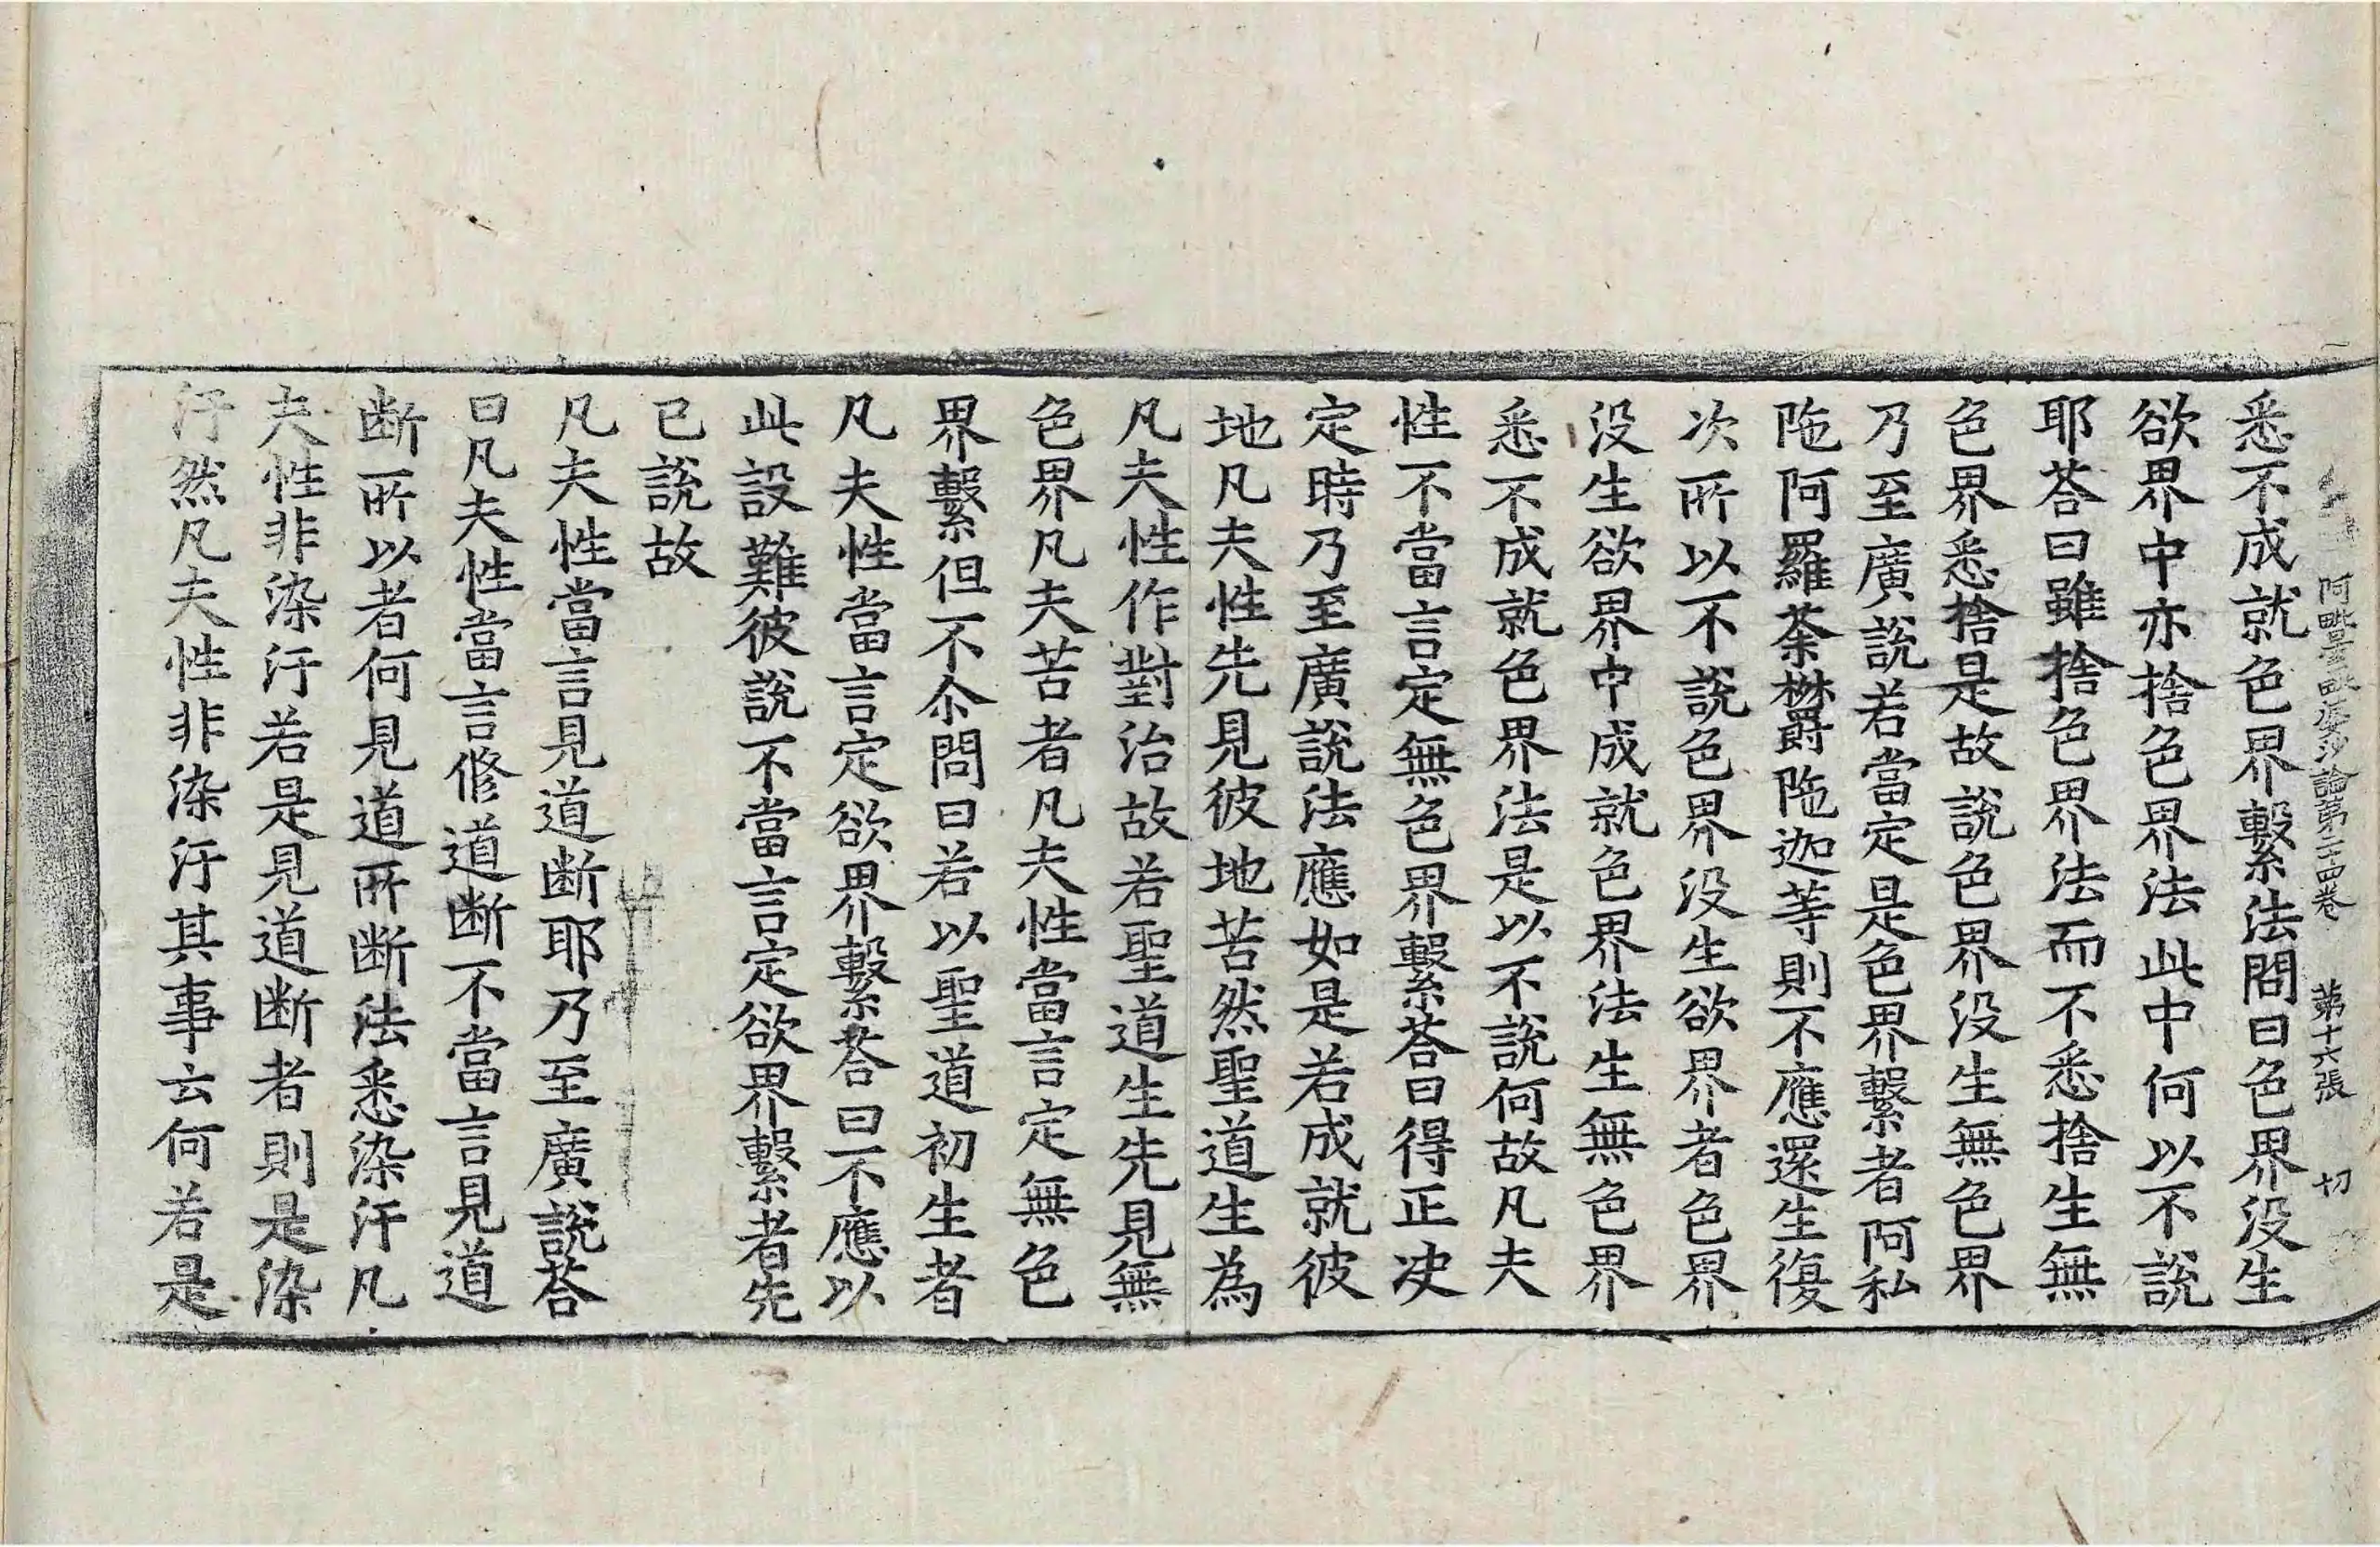 阿毗曇毗婆沙論第二十四卷　第十六張　切
悉不成就色界繫法問曰色界没生
欲界中亦捨色界法此中何以不說
耶荅曰雖捨色界法而不悉捨生無
色界悉捨是故說色界没生無色界
乃至廣說若當定是色界繫者阿私
陁阿羅荼欝陁迦等則不應還生復
次所以不說色界没生欲界者色界
没生欲界中成就色界法生無色界
悉不成就色界法是以不說何故凡夫
性不當言定無色界繫荅曰得正决
定時乃至廣說法應如是若成就彼
地凡夫性先見彼地苦然聖道生為
凡夫性作對治故若聖道生先見無
色界凡夫苦者凡夫性當言定無色
界繫但不尒問曰若以聖道初生者
凡夫性當言定欲界繫荅曰不應以
此設難彼說不當言定欲界繫者先
已說故
凡夫性當言見道断耶乃至廣說荅
曰凡夫性當言修道断不當言見道
断所以者何見道所断法悉染汙凡
夫性非染汙若是見道断者則是染
汙然凡夫性非染汙其事云何若是